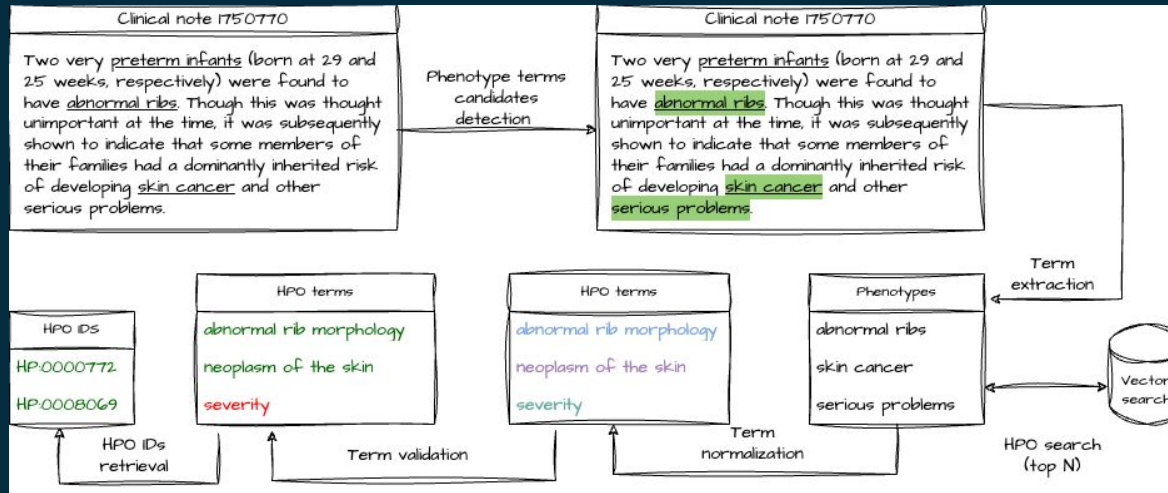 Clinical note 1750770
Two very preterm infants (born at 29 and
25 weeks, respectively) were found to
have abnormal ribs. Though this was thought
unimportant at the time, it was subsequently
shown to indicate that some members of
their families had a dominantly inherited risk
of developing skin cancer and other
serious problems.
Phenotype terms
candidates
detection
Clinical note 1750770
Two very preterm infants (born at 29 and
25 weeks, respectively) were found to
have abnormal ribs. Though this was thought
unimportant at the time, it was subsequently
shown to indicate that some members of
their families had a dominantly inherited risk
of developing skin cancer and other
serious problems.
Term
extraction
Phenotypes
abnormal ribs
skin cancer
serious problems
Vector
search
HPO search
(top N)
Term
normalization
HPO terms
abnormal rib morphology
neoplasm of the skin
severity
Term validation
HPO terms
abnormal rib morphology
neoplasm of the skin
severity
HPO IDs
retrieval
HPO IDS
HP:0000772
HP:0008069